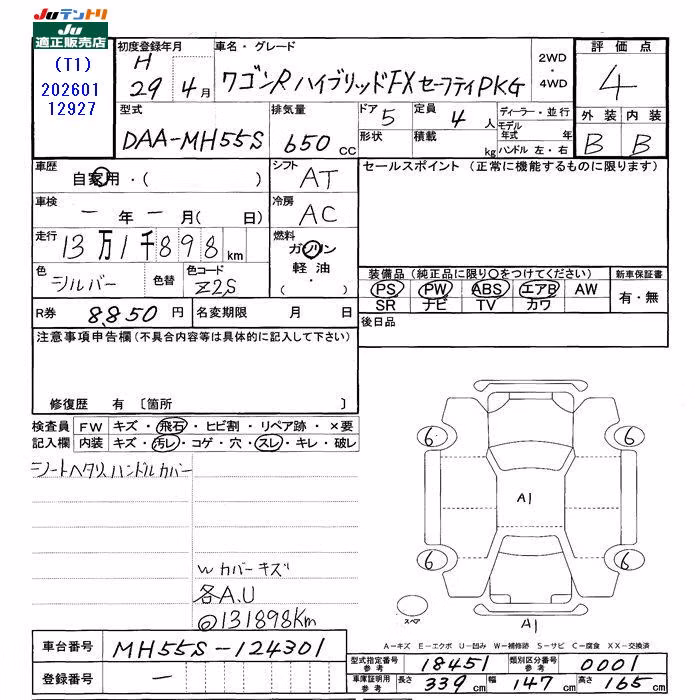 JUテントリ
JU
適正販売店
(T1)
202601
12927
初度登録年月
H
29年 4月
車名・グレード
ワゴンR ハイブリッドFX セーフティPKG
2WD
・
4WD
評価点
4
外装 内装
B B
型式
DAA-MH55S
排気量
650cc
ドア 5
形状
定員 4人
積載 kg
ディーラー・並行
モデル年式 年
ハンドル 左・右
車歴
自家用・( )
シフト
AT
セールスポイント (正常に機能するものに限ります)
車検
ー年ー月( 日)
冷房
AC
走行
13万1千898km
燃料
ガソリン
軽油
・
( )
色
シルバー
色替
色コード
Z2S
装備品(純正品に限り○をつけてください)
PS PW ABS エアB AW
SR ナビ TV カワ
新車保証書
有・無
R券 8,850円
名変期限 月 日
後日品
注意事項申告欄(不具合内容等は具体的に記入して下さい)
修復歴 有〔箇所 〕
検査員記入欄
FW キズ・飛石・ヒビ割・リペア跡・×要
内装 キズ・汚レ・コゲ・穴・スレ・キレ・破レ
シートヘタリ、ハンドルカバー
Wカバーキズ
各A.U
◎131898Km
6 6
A1
6 6
スペア
A1
A-キズ E-エクボ U-凹み W-補修跡 S-サビ C-腐食 XX-交換済
車台番号 MH55S-124301
登録番号 ー
型式指定番号参考 18451 類別区分番号参考 0001
車庫証明用参考 長さ 339cm 幅 147cm 高さ 165cm